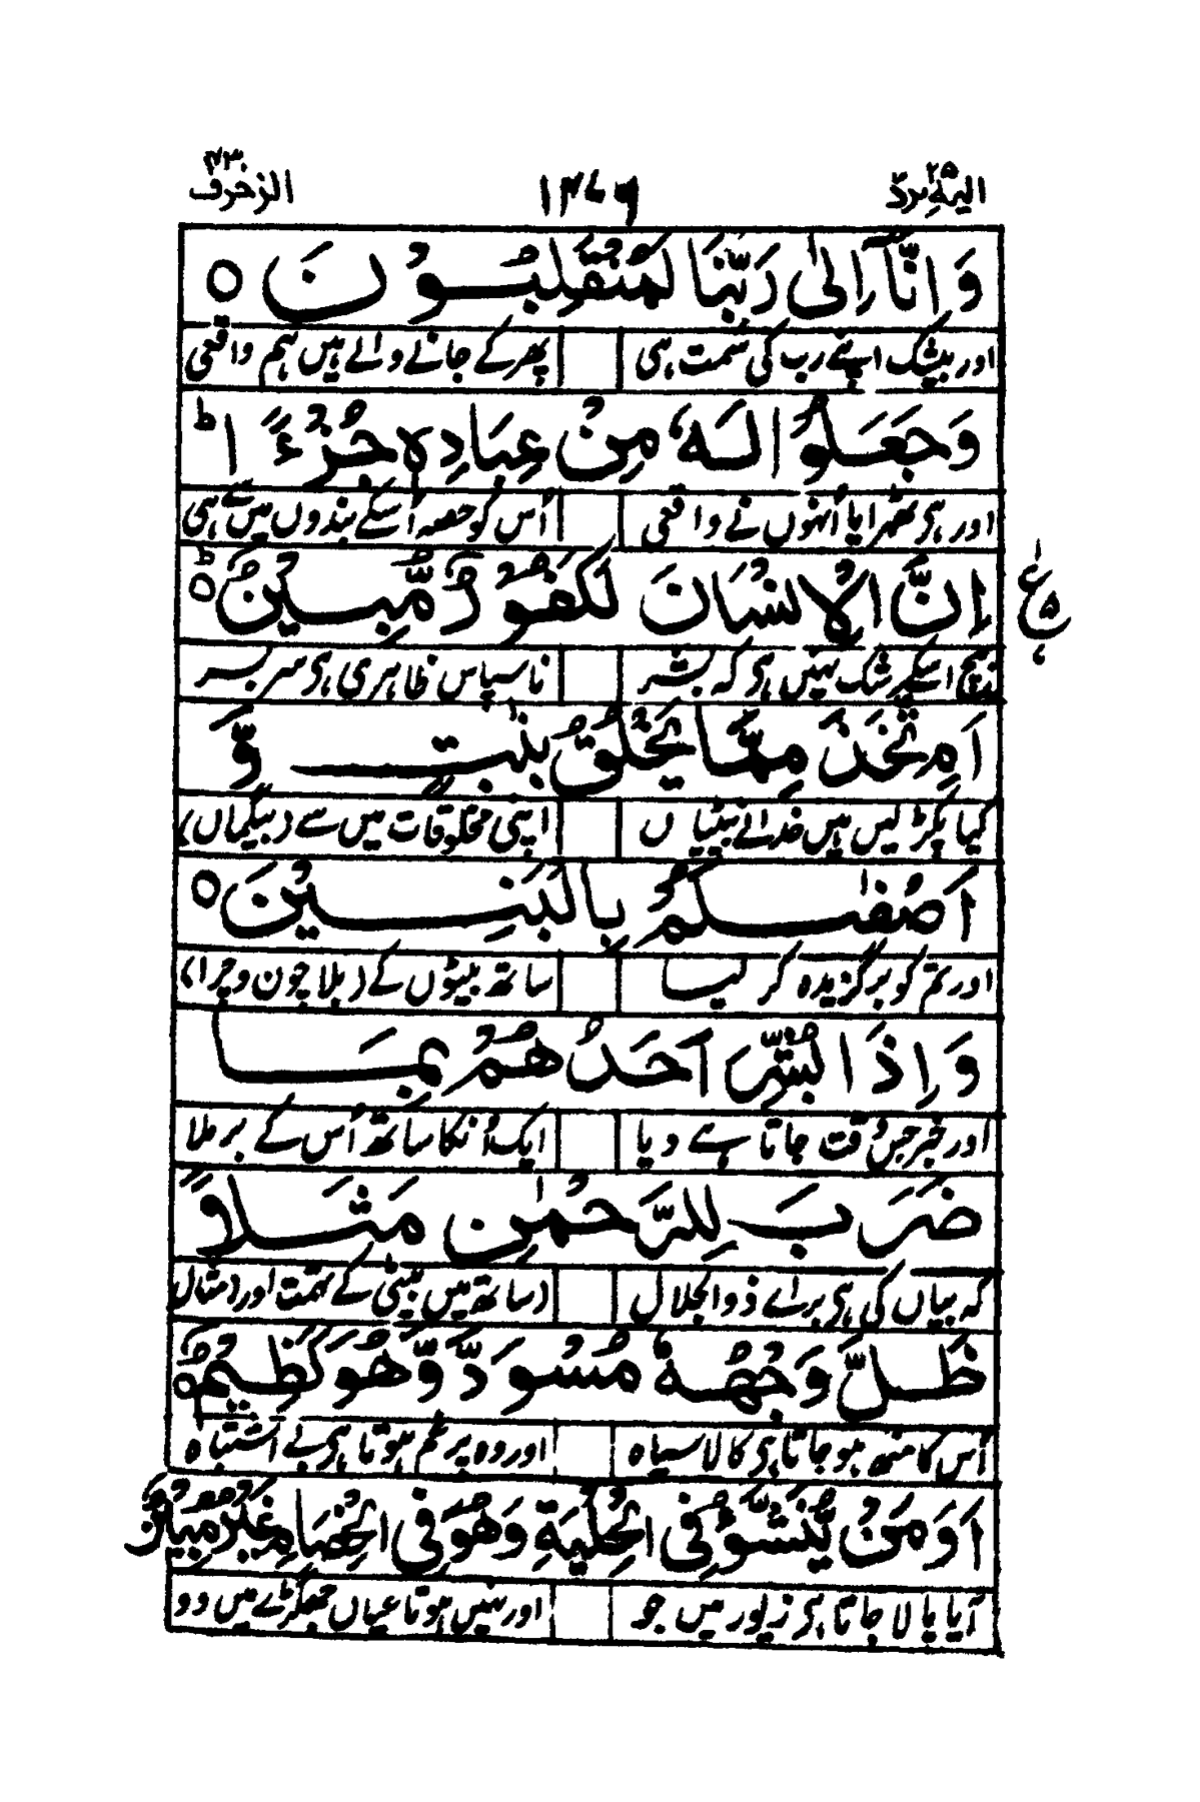 الیہ یرد ۲۵
۱۴۷۶
الزخرف ۴۳
وَاِنَّآ اِلٰى رَبِّنَا لَمُنْقَلِبُوْنَ ○
اور بیشک اپنے رب کی سمت ہی پھر کے جانے والے ہیں ہم واقعی
وَجَعَلُوْا لَهٗ مِنْ عِبَادِهٖ جُزْءًا ط
اور ہی ٹھہرایا اُنہوں نے واقعی اُس کو حصہ اُسکے بندوں میں سے ہی
اِنَّ الْاِنْسَانَ لَكَفُوْرٌ مُّبِيْنٌ ○ ط
اسکے شک نہیں ہی کہ بشر ناسپاس ظاہری ہی سر بسر
ع
اَمِ تَّخَذَ مِمَّا يَخْلُقُ بَنٰتٍ وَّ
کیا پکڑ لیں ہیں خدا نے بیٹیاں اپنی مخلوقات میں سے (بیگماں)
اَصْفٰىكُمْ بِالْبَنِيْنَ ○
اور تم کو برگزیدہ کر لیا ساتھ بیٹوں کے (بلا چون و چرا)
وَاِذَا بُشِّرَ اَحَدُهُمْ بِمَا
اور خبر جس وقت جاتا ہے دیا ایک اُنکا ساتھ اُس کے برملا
ضَرَبَ لِلرَّحْمٰنِ مَثَلًا
کہ بیاں کی ہی براے ذوالجلال (ساتھ میں بیٹی کے تہمت اور) مثال
ظَلَّ وَجْهُهٗ مُسْوَدًّا وَّهُوَ كَظِيْمٌ ○
اُس کا منھ ہو جاتا ہی کالا سیاہ اور وہ پر غم ہوتا ہی بے اشتباہ
اَوَمَنْ يُّنَشَّؤُ فِى الْحِلْيَةِ وَهُوَ فِى الْخِصَامِ غَيْرُ مُبِيْنٍ
آیا پالا جاتا ہی زیور میں جو اور نہیں ہوتا عیاں جھگڑے میں وو